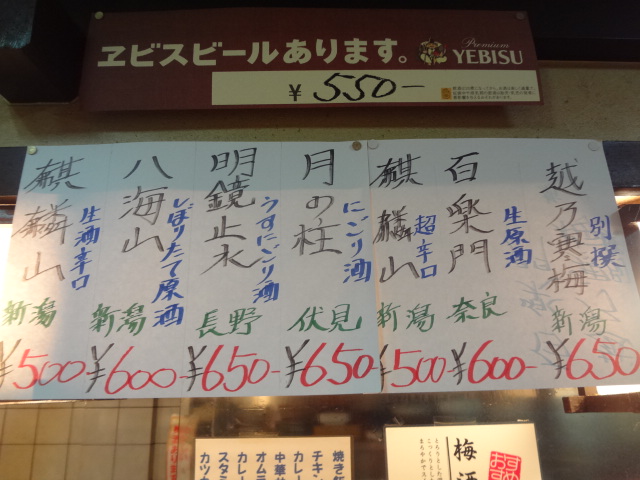 ヱビスビールあります。
Premium
YEBISU
¥550-
越乃寒梅
別撰
新潟
¥650
百楽門
生原酒
奈良
¥600-
麒麟山
超辛口
新潟
¥500
月の桂
にごり酒
伏見
¥650-
明鏡止水
うすにごり酒
長野
¥650-
八海山
しぼりたて原酒
新潟
¥600-
麒麟山
生酒辛口
新潟
¥500
梅酒
とろりとした
こっくりとした
まろやかで
おすすめ
焼き飯
チキン
カレー
中華
オム
カレー
スタミ
カツ